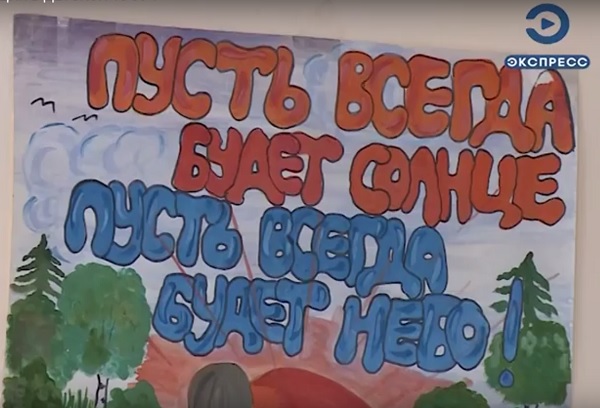 ЭКСПРЕСС
ПУСТЬ ВСЕГДА
БУДЕТ СОЛНЦЕ
ПУСТЬ ВСЕГДА
БУДЕТ НЕБО!